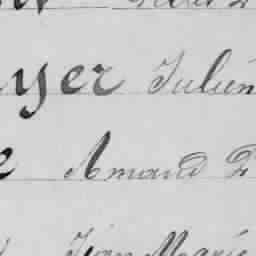 yer Julien
e Amand
Jean Marie